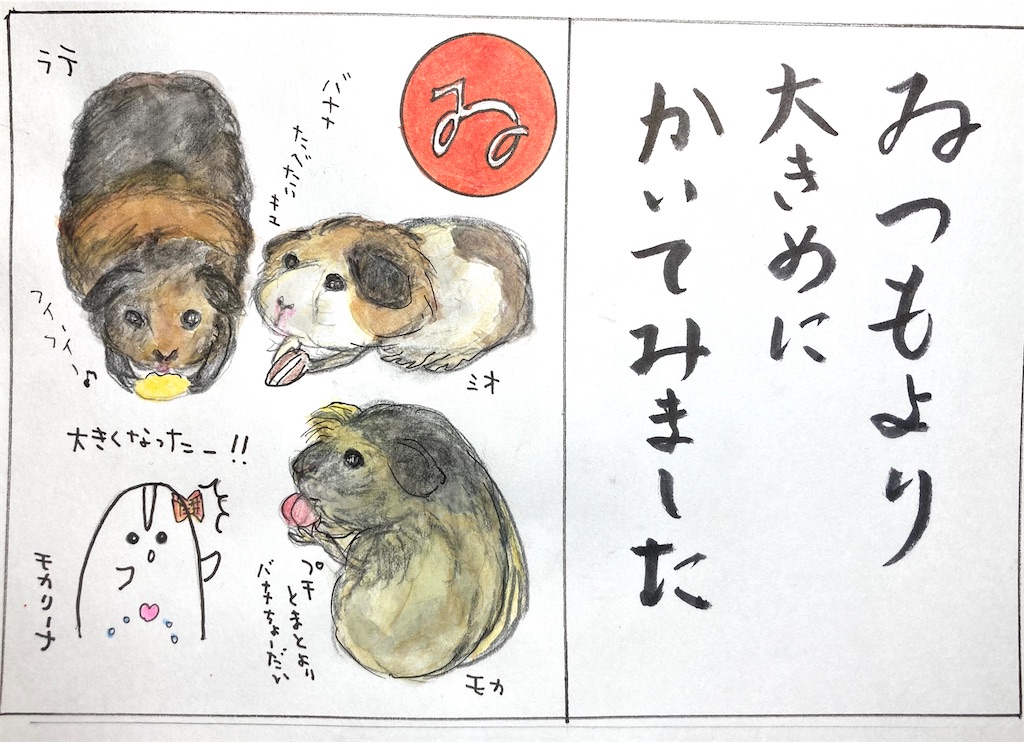 ゐつもより
大きめに
かいてみました
ゐ
バナナ
たべたい
キュ
ラテ
フイ、フイ、♪
ミオ
大きくなったー!!
モカリーナ
プチ
とまとより
バナナちょーだい
モカ